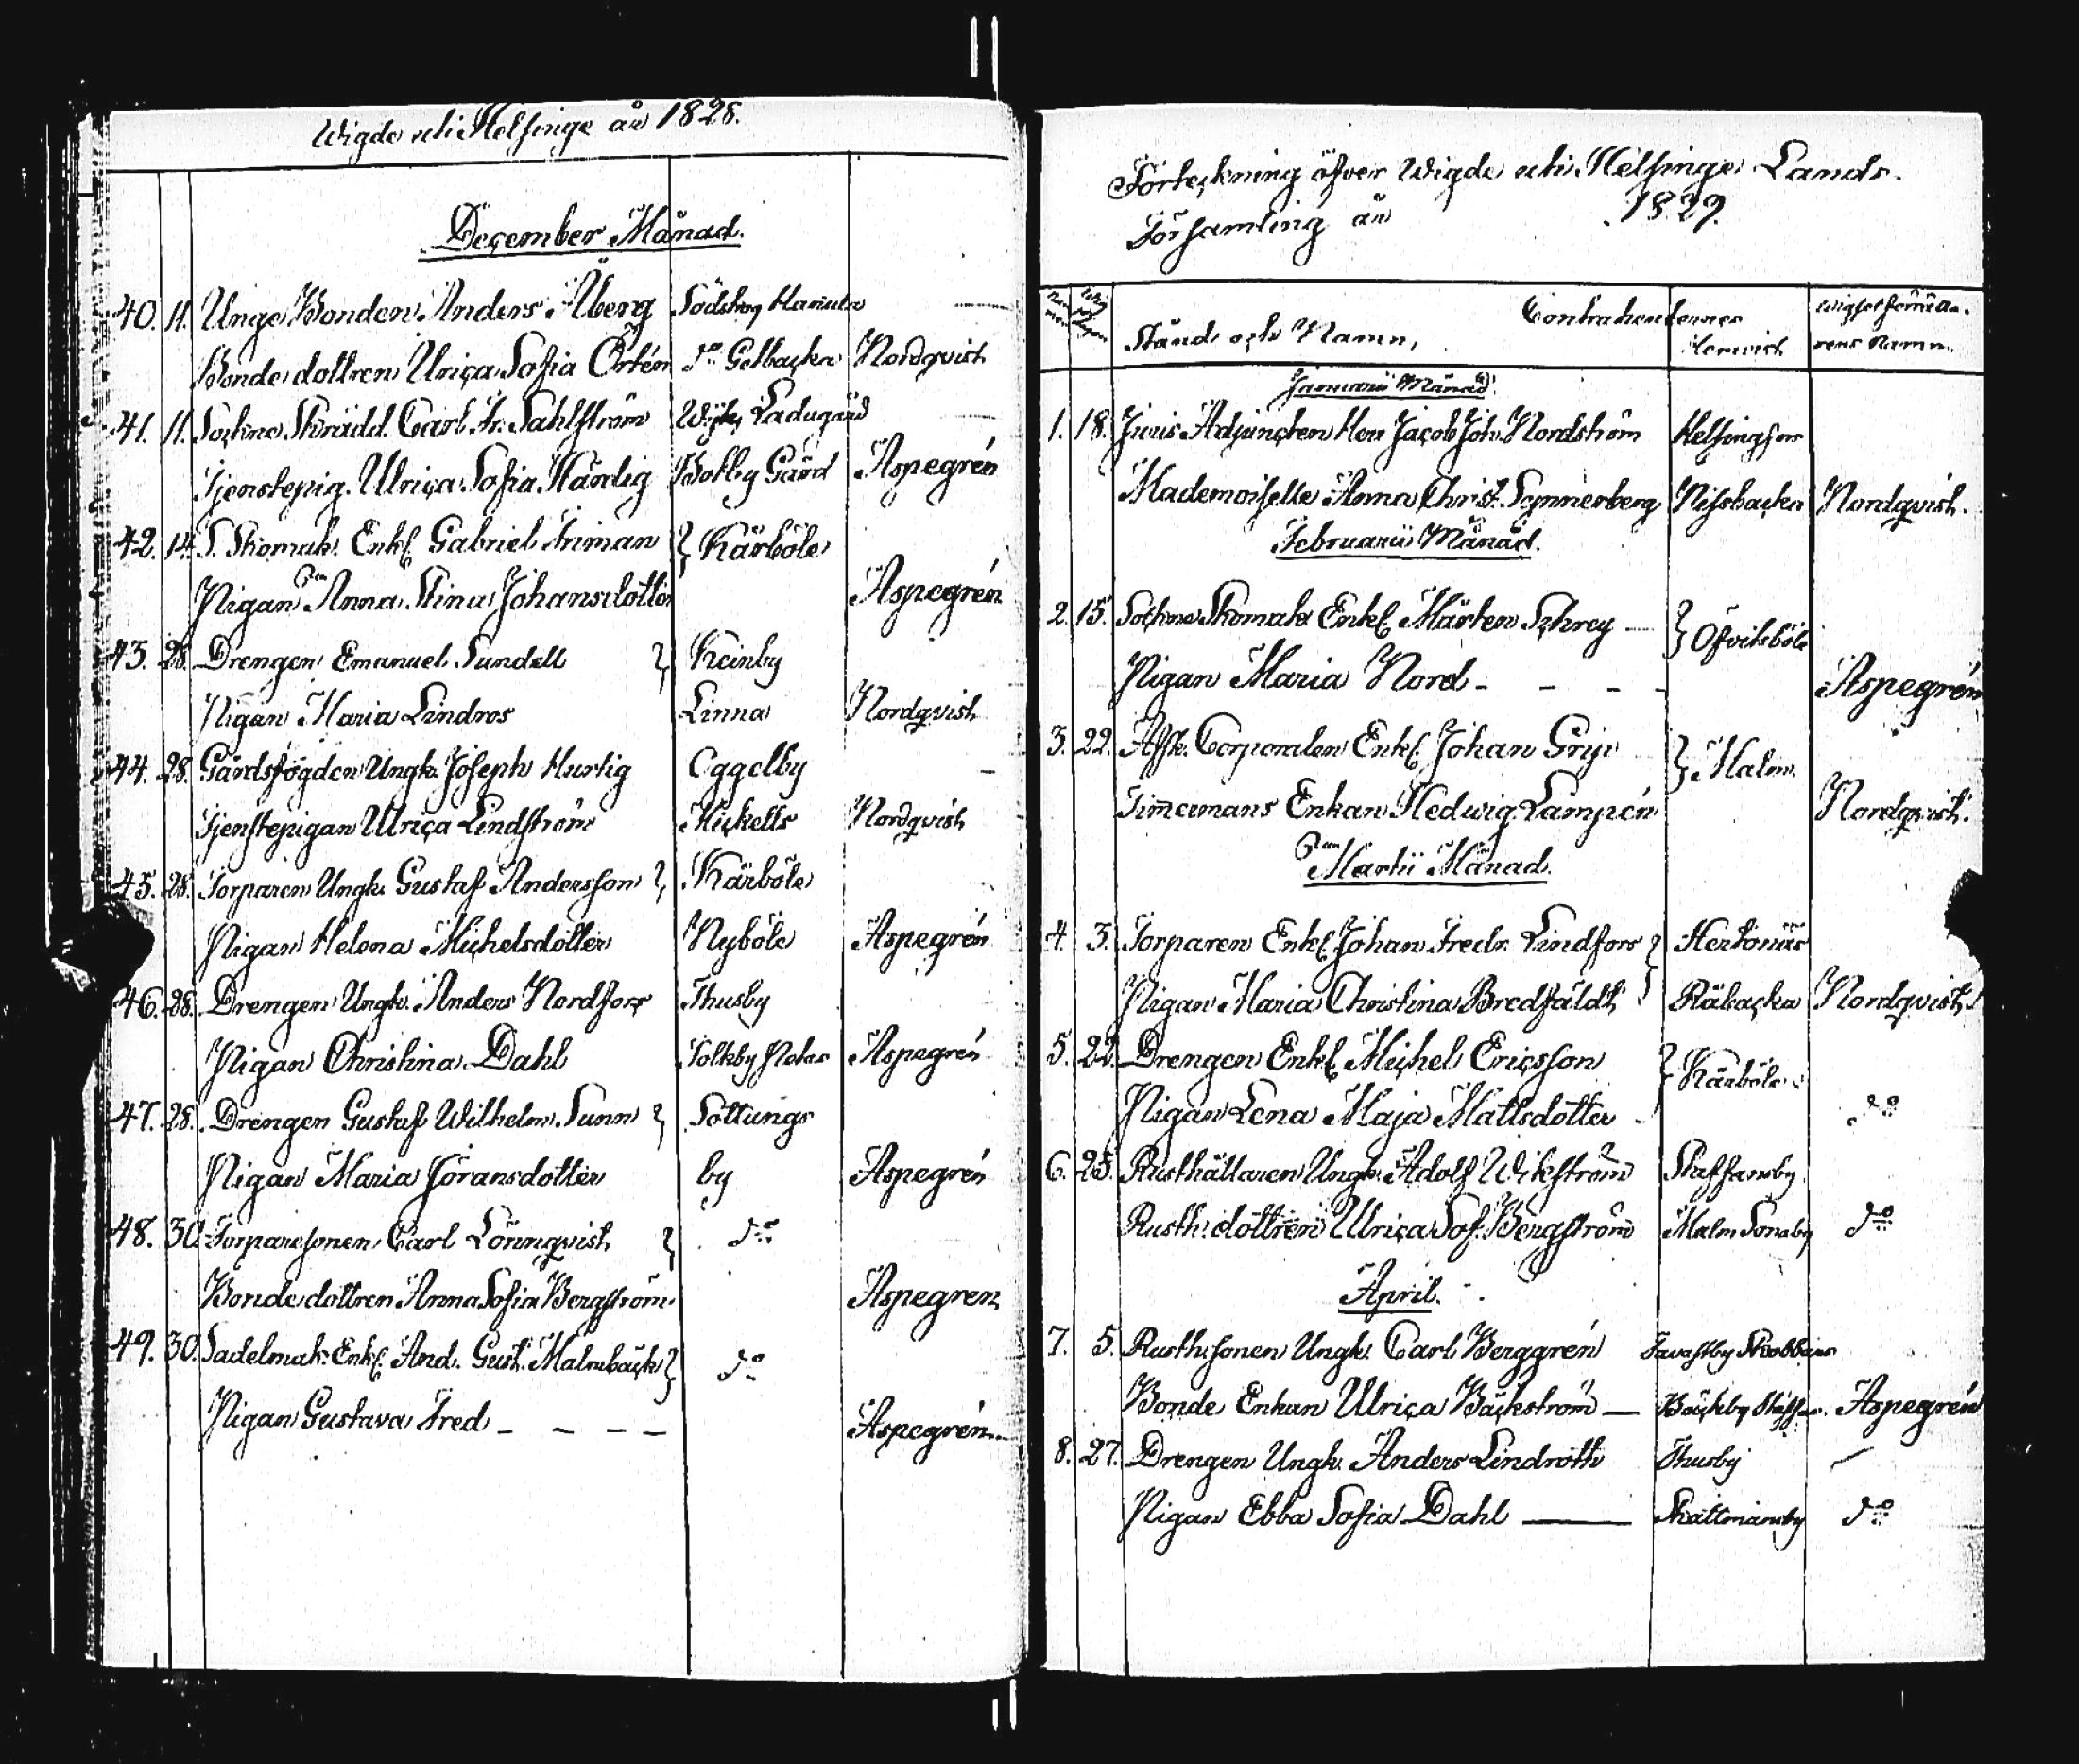 Wigde uti Helsinge år 1828.
December Månad.
40. 11. Unge Bonden Anders Åberg Södskog
Bonde dottren Ulrica Sofia Örtén do Getbacka Nordqvist
41. 11. Sockne Skrädd. Carl Fr. Sahlström Ladugård
Tjenstepig. Ulrica Sofia Härdig Botby Gård Aspegrén
42. 14. S. Skomak. Enkl. Gabriel Friman } Kårböle
Pigan Anna Stina Johansdotter Aspegrén
43. 28. Drengen Emanuel Sundell } Keinby
Pigan Maria Lindros Linna Nordqvist
44. 28. Gårdsfogden Ungk. Joseph Hurtig Oggelby
Tjenstepigan Ulrica Lindström Mickells Nordqvist
45. 28. Torparen Ungk. Gustaf Andersson } Kårböle
Pigan Helena Michelsdotter Nyböle Aspegrén
46. 28. Drengen Ungk. Anders Nordfors Thusby
Pigan Christina Dahl Tolkby Aspegrén
47. 28. Drengen Gustaf Wilhelm Sunn } Sottungs
Pigan Maria Göransdotter by Aspegrén
48. 30. Torparesonen Carl Lönnqvist } do
Bonde dottren Anna Sofia Bergström Aspegren
49. 30. Sadelmak. Enkl. And. Gust. Malmbäck } do
Pigan Gustava Fred - - - - Aspegrén
Förteckning öfver Wigde uti Helsinge Lands.
Församling år 1829.
Contrahenternes Wigselförrätta.
Stånd och Namn, Hemvist rens Namn.
Januarii Månad.
1. 18. Juris Adjuncten Herr Jacob Joh. Nordström Helsingfors
Mademoiselle Anna Christ. Synnerberg Nissbacka Nordqvist.
Februarii Månad.
2. 15. Sockne Skomak. Enkl. Mårten Schrey } Ofvitsböle
Pigan Maria Nord - - - - Aspegrén
3. 22. Afsk. Corporalen Enkl. Johan Grip } Malm.
Timermans Enkan Hedwig Lampén Nordqvist.
Martii Månad.
4. 3. Torparen Enkl. Johan Fredr. Lindfors } Hertonäs
Pigan Maria Christina Bredfäldt Råbacka Nordqvist.
5. 22. Drengen Enkl. Michel Ericsson } Kårböle
Pigan Lena Maja Mattsdotter do
6. 25. Rusthållaren Ungk. Adolf Wikström Staffansby
Rusth. dottren Ulrica Sof. Bergström Malm Tonsby do
April.
7. 5. Rusth. sonen Ungk. Carl Berggrén Tavastby
Bonde Enkan Ulrica Bäckström — Bäckby Aspegrén
8. 27. Drengen Ungk. Anders Lindroth Thusby
Pigan Ebba Sofia Dahl — Skattmansby do